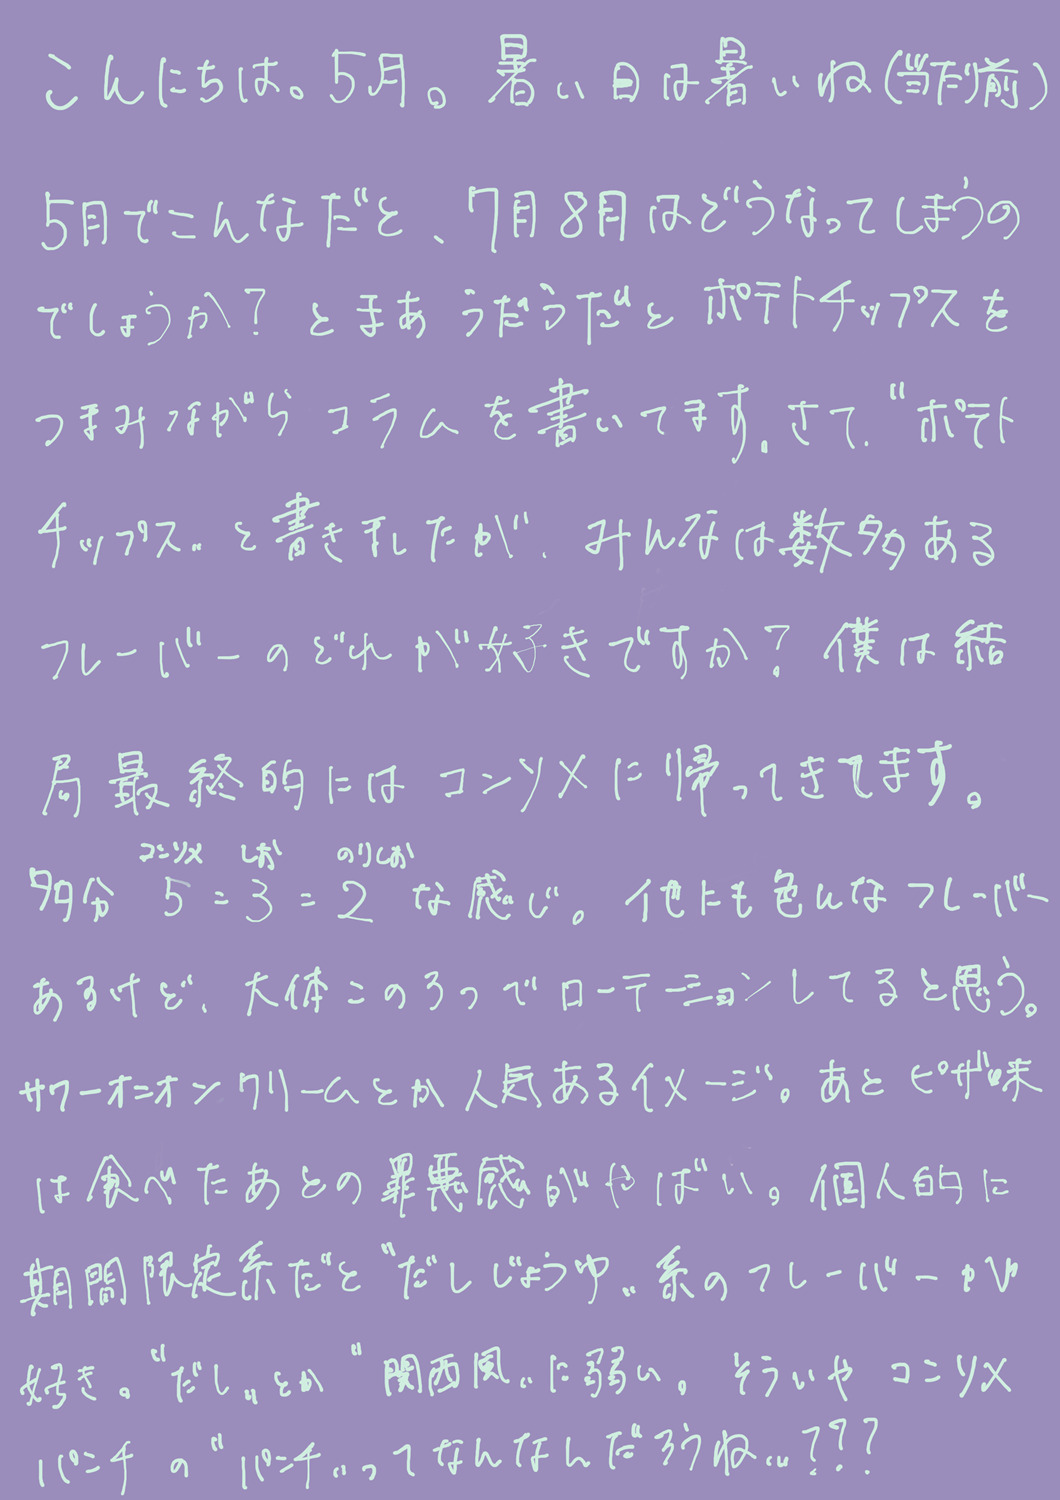 こんにちは。5月。暑い日は暑いね(当だり前)
5月でこんなだと、7月8月はどうなってしまうの
でしょうか?とまあうだうだとポテトチップスを
つまみながらコラムを書いてます。さて、"ポテト
チップス"と書きましたが、みんなは数多ある
フレーバーのどれが好きですか?僕は結
局最終的にはコンソメに帰ってきてます。
コンソメ しお のりしお
多分 5=3=2 な感じ。他にも色んなフレーバー
あるけど、大体この3つでローテーションしてると思う。
サワーオニオンクリームとか人気あるイメージ。あとピザ味
は食べたあとの罪悪感がやばい。個人的に
期間限定系だと"だしじょうゆ"系のフレーバーが
好き。"だし"とか"関西風"に弱い。そういやコンソメ
パンチの"パンチ"ってなんなんだろうね…???